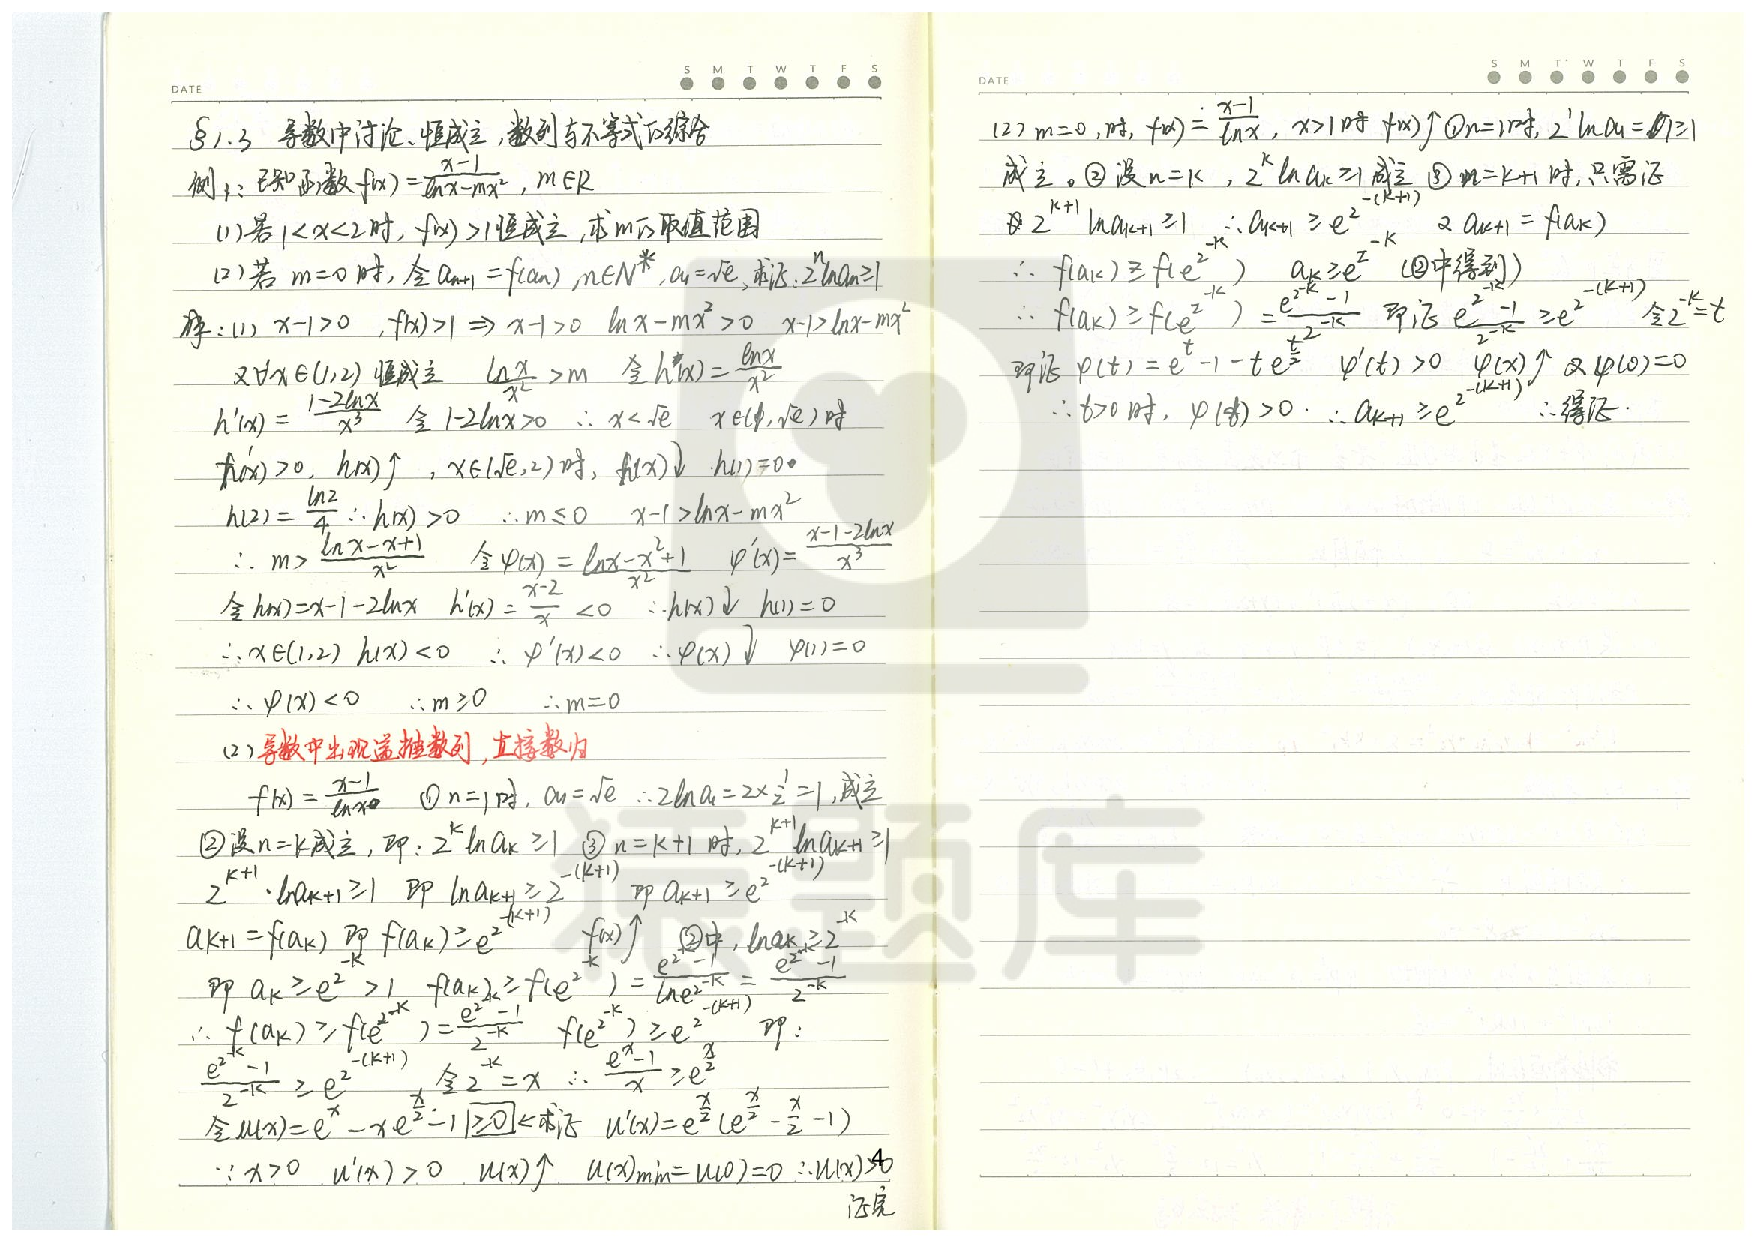 DATE
S M T W T F S
§1.3 导数中讨论、恒成立,数列与不等式的综合
例1: 已知函数 f(x)=(x-1)/(lnx-mx²), m∈R
(1)若1<x<2时, f(x)>1恒成立,求m的取值范围
(2)若 m=0时, 令aₙ₊₁=f(aₙ), n∈N*, a₁=√e, 求证: 2ⁿlnaₙ≥1
解: (1) x-1>0 , f(x)>1 ⇒ x-1>0 lnx-mx²>0 x-1>lnx-mx²
又∀x∈(1,2) 恒成立 lnx/x²>m 令h(x)=lnx/x²
h'(x)=(1-2lnx)/x³ 令1-2lnx>0 ∴x<√e x∈(1,√e)时
h'(x)>0, h(x)↑, x∈(√e,2)时, h(x)↓ h(1)=0
h(2)=ln2/4 ∴h(x)>0 ∴m≤0 x-1>lnx-mx²
∴m>(lnx-x+1)/x² 令φ(x)=(lnx-x²+1)/x² φ'(x)=(x-1-2lnx)/x³
令h(x)=x-1-2lnx h'(x)=(x-2)/x<0 ∴h(x)↓ h(1)=0
∴x∈(1,2) h(x)<0 ∴φ'(x)<0 ∴φ(x)↓ φ(1)=0
∴φ(x)<0 ∴m≥0 ∴m=0
(2) 导数中出现递推数列,直接数归
f(x)=(x-1)/lnx ①n=1时, a₁=√e ∴2lna₁=2×1/2=1,成立
②设n=k成立, 即: 2^k lna_k≥1 ③n=k+1时, 2^(k+1) lna_(k+1)≥1
2^(k+1)·lna_(k+1)≥1 即 lna_(k+1)≥2^(-(k+1)) 即 a_(k+1)≥e^(2^(-(k+1)))
a_(k+1)=f(a_k) 即 f(a_k)≥e^(2^(-(k+1))) f(x)↑ ②中, lna_k≥2^(-k)
即 a_k≥e^(2^(-k))>1 f(a_k)≥f(e^(2^(-k)))=(e^(2^(-k))-1)/(lne^(2^(-k)))=(e^(2^(-k))-1)/2^(-k)
∴f(a_k)≥f(e^(2^(-k)))=(e^(2^(-k))-1)/2^(-k) f(e^(2^(-k)))≥e^(2^(-(k+1))) 即:
(e^(2^(-k))-1)/2^(-k)≥e^(2^(-(k+1))) 令2^(-k)=x ∴(e^x-1)/x≥e^(x/2)
令u(x)=e^x-xe^(x/2)-1 ≥0<求证 u'(x)=e^(x/2)(e^(x/2)-x/2-1)
∵x>0 u'(x)>0 u(x)↑ u(x)min=u(0)=0 ∴u(x)>0
证完
DATE
S M T W T F S
(2) m=0,时, f(x)=(x-1)/lnx, x>1时 f(x)↑ ①n=1时, 2¹lna₁=1≥1
成立。②设n=k, 2^k lna_k≥1成立 ③n=k+1时,只需证
2^(k+1) lna_(k+1)≥1 ∴a_(k+1)≥e^(2^(-(k+1))) 又a_(k+1)=f(a_k)
∴f(a_k)≥f(e^(2^(-k))) a_k≥e^(2^(-k)) (②中得到)
∴f(a_k)≥f(e^(2^(-k)))=(e^(2^(-k))-1)/2^(-k) 即证 (e^(2^(-k))-1)/2^(-k)≥e^(2^(-(k+1))) 令2^(-k)=t
即证 φ(t)=e^t-1-te^(t/2) φ'(t)>0 φ(x)↑ 又φ(0)=0
∴t>0时, φ(t)>0. ∴a_(k+1)≥e^(2^(-(k+1))) ∴得证.
猿题库